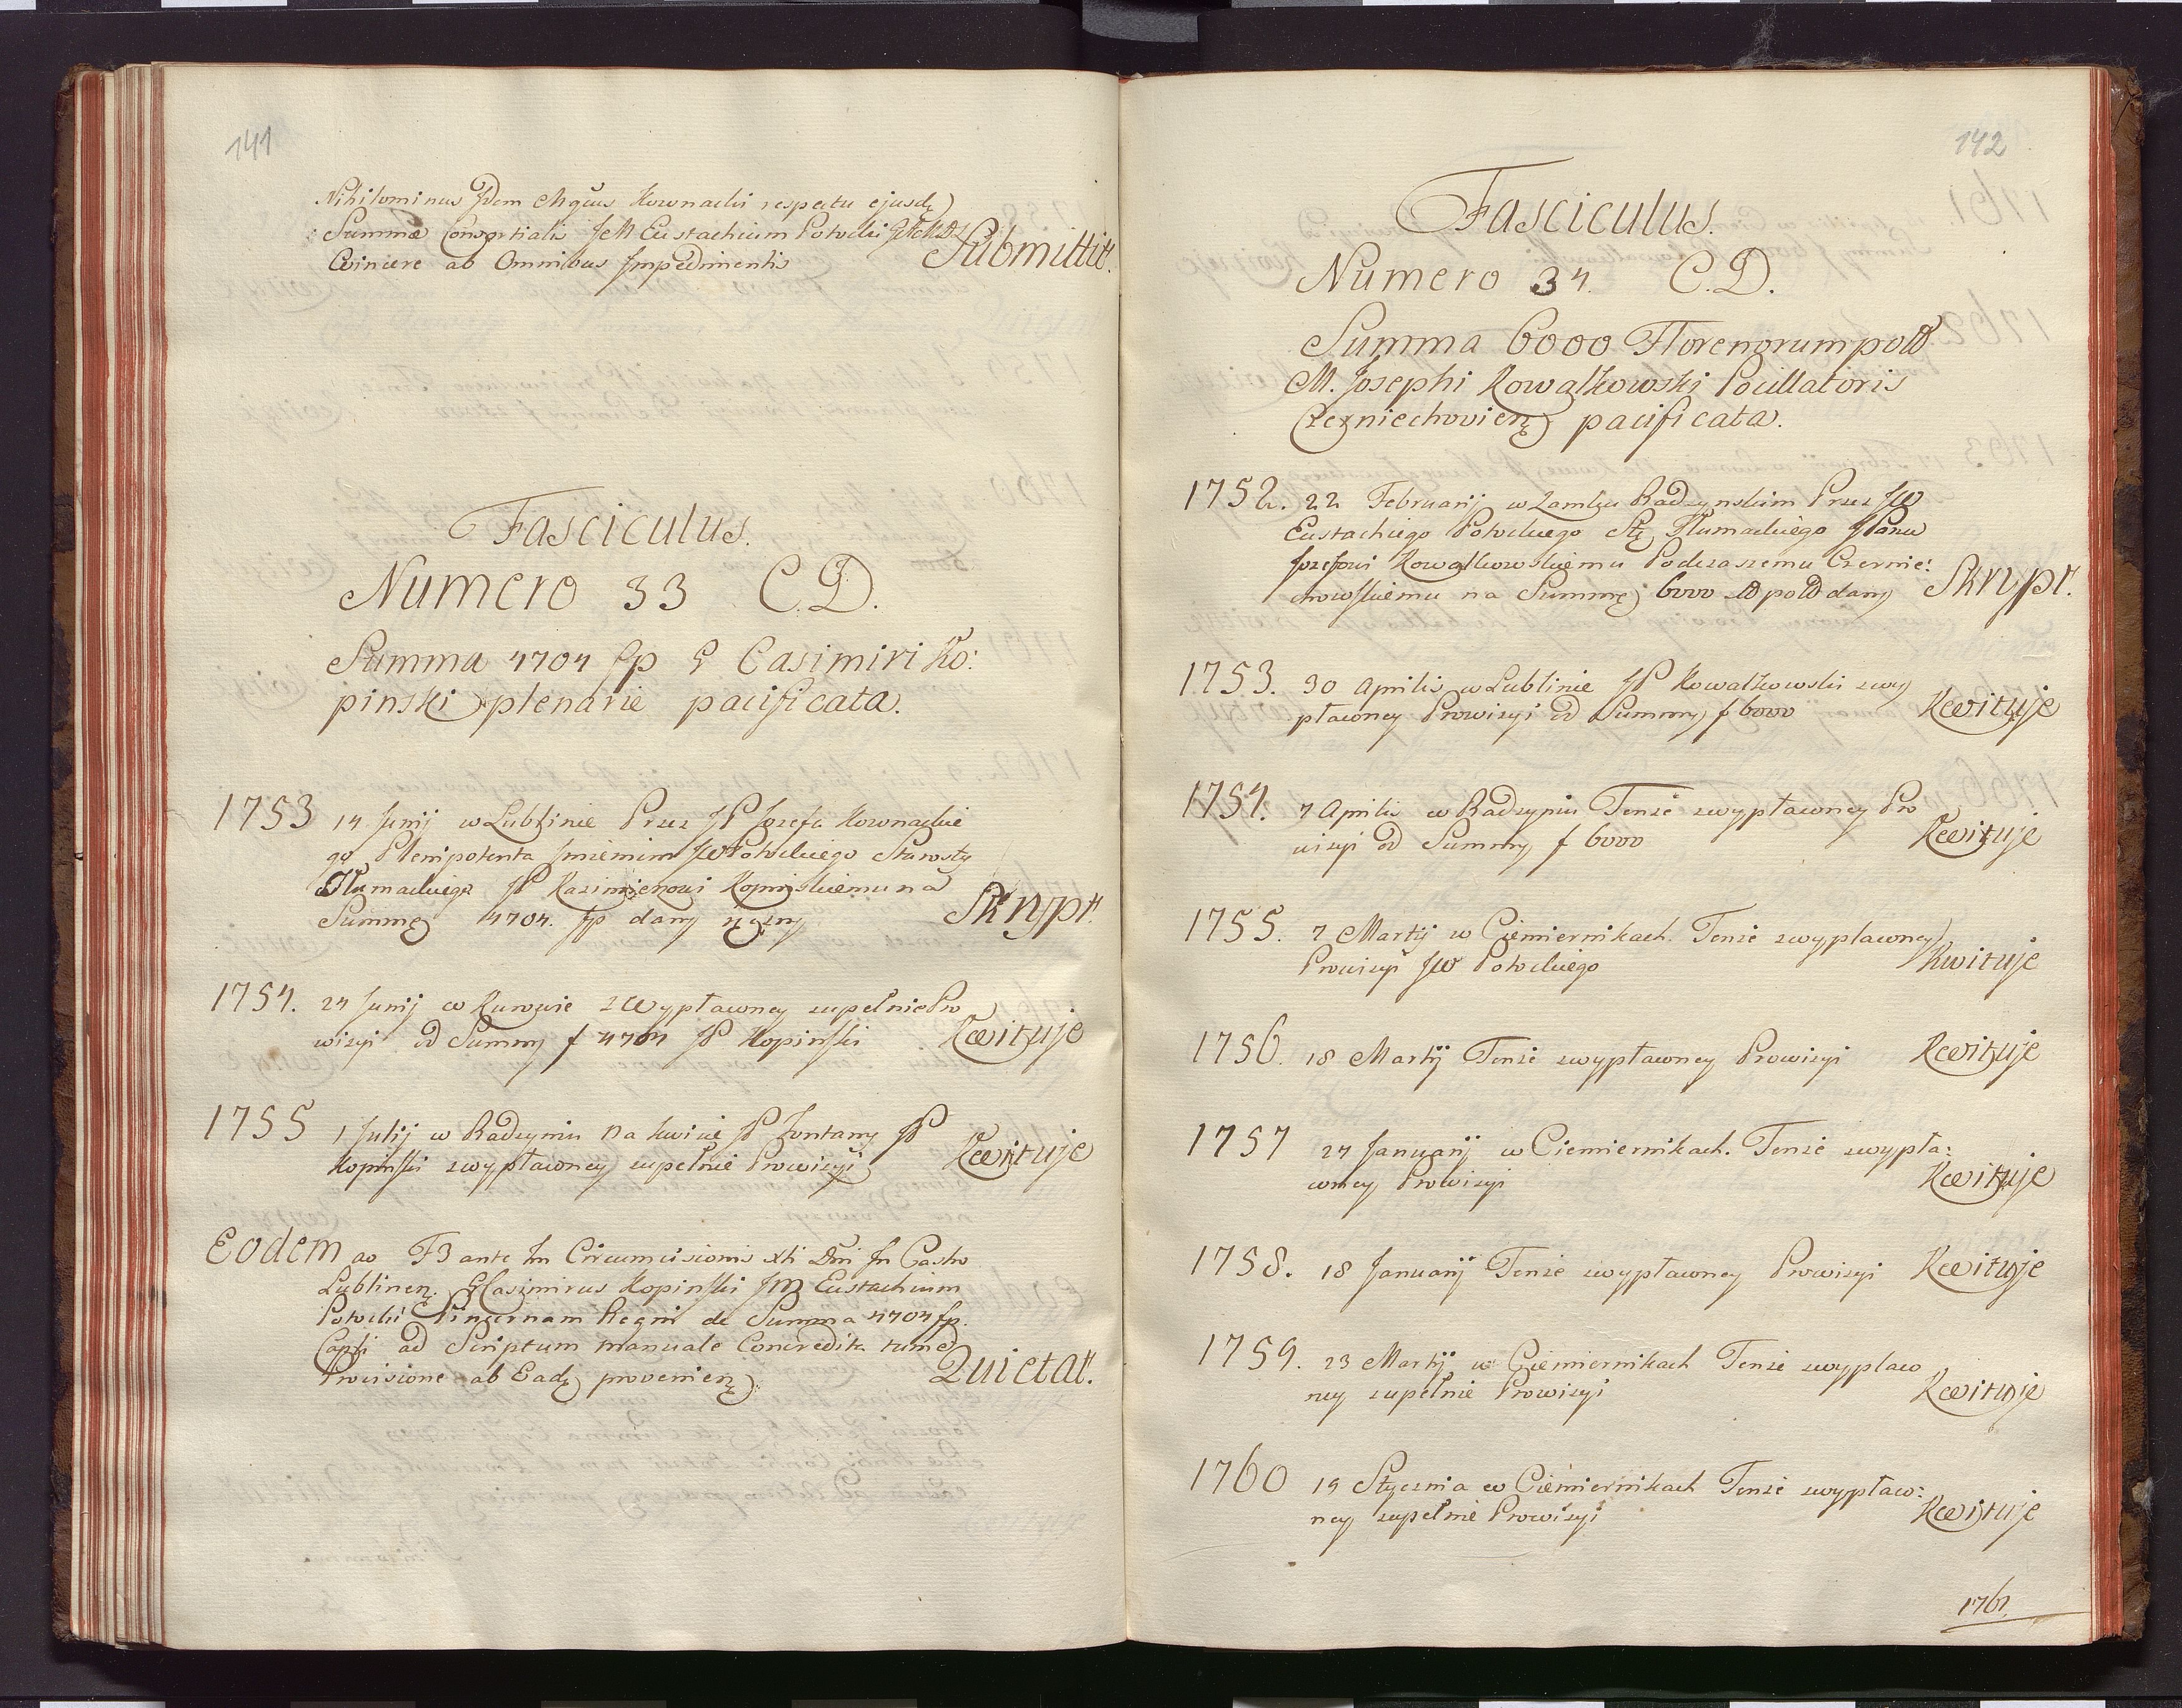 141
Nihilominus Idem Mgcus Kownacki respectu ejusdę
Summæ Consortialis JeM Eustachium Potocki
Evincere ab Omnibus Impedimentis Submittit.
Fasciculus.
Numero 33 C.D.
Summa 4704 fp G Casimiri Ko:
pinski plenarie pacificata.
1753 14 Junij w Lublinie Przez JP Jozefa Kownackie
go Plenipotenta Imieniem JW Potockiego Starosty
Tłumackiego JP Kazimierzowi Kopinskiemu na
Summę 4704. fp dany ręczny Skrypt.
1754. 24 Junij w Kurowie zwypłaconey zupełnie Pro
wizyi od Summy f 4704 JP Kopinski Kwituje
1755 1 Julij w Radzyniu na kwicie JP Fontany JP
Kopinski zwypłaconey zupełnie Prowizyi Kwituje
Eodem ao F3 ante Fm Circumcisionis xti Dni In Castro
Lublinen. G Casimirus Kopinski JM Eustachium
Potocki Pincernam Regni de Summa 4704 fp.
Capli ad Scriptum manuale Concredita
Provisione ab Eadę provenien. Quietat.
142
Fasciculus.
Numero 34. C.D.
Summa 6000 Florenorum poll
M. Josephi Kowalkowski Pocillatoris
Czerniechovien. pacificata.
1752. 22 Februarij w Zamku Radzynskim Przez JW
Eustachiego Potockiego Stę Tłumackiego JPanu
Jozefowi Kowalkowskiemu Podczaszemu Czernie:
chowskiemu na Summę 6000 zł poll dany Skrypt.
1753. 30 Aprilis w Lublinie JP Kowalkowski zwy
płaconey Prowizyi od Summy f 6000 Kwituje
1754. 7 Aprilis w Radzyniu Tenże zwypłaconey Pro
wizyi od Summy f 6000 Kwituje
1755. 7 Martij w Ciemiernikach. Tenże zwyplaconey
Prowizyi JW Potockiego Kwituje
1756. 18 Martij Tenże zwypłaconey Prowizyi Kwituje
1757 27 Januarij w Ciemiernikach. Tenże zwypła:
coney Prowizyi Kwituje
1758. 18 Januarij Tenże zwypłaconey Prowizyi Kwituje
1759. 23 Martij w Ciemiernikach Tenże zwyplaco
ney zupełnie Prowizyi Kwituje
1760 19 Stycznia w Ciemiernikach Tenże zwypłaco:
ney zupełnie Prowizyi Kwituje
1761.